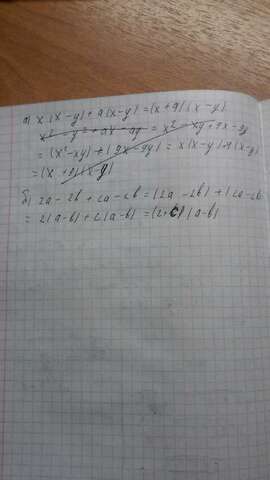 а) x(x-y)+9(x-y)=(x+9)(x-y)
x²-y²+9x-9y = x²-xy+9x-9y
=(x²-xy)+(9x-9y)= x(x-y)+9(x-y)
=(x+9)(x-y)
б) 2a-2b+ca-cb=(2a-2b)+(ca-cb
=2(a-b)+c(a-b)=(2+c)(a-b)